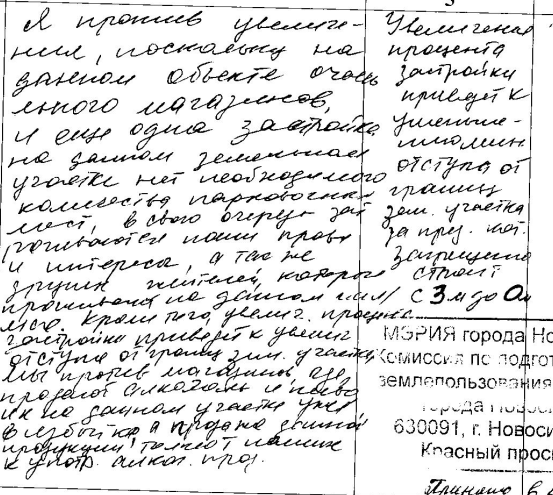 Я против увеличе-
ния, поскольку на
данном объекте очень
много магазинов,
и еще одна застройка
на данном земельном
участке нет необходимого
количества парковочных
мест, в свою очередь зат
рагиваются наши права
и интересы, а так же
других жителей, которые
проживают на данном
Кроме того, увелич. процента
застройки приведет к увелич
отступа от границ зем. участка
Мы против магазинов, где
продают алкоголь и пиво
их на данном участке уже
в избытке а продажа данной
продукции, толкает наших
к употр. алког. прод.
Увеличение
процента
застройки
приведет к
уменьше-
отступа от
границ
зем. участка
за пред. кот.
запрещено
строит
с 3м до 0м
МЭРИЯ города Но
Комиссия по подгот
землепользования
города Новоси
630091, г. Новоси
Красный прос
Принято